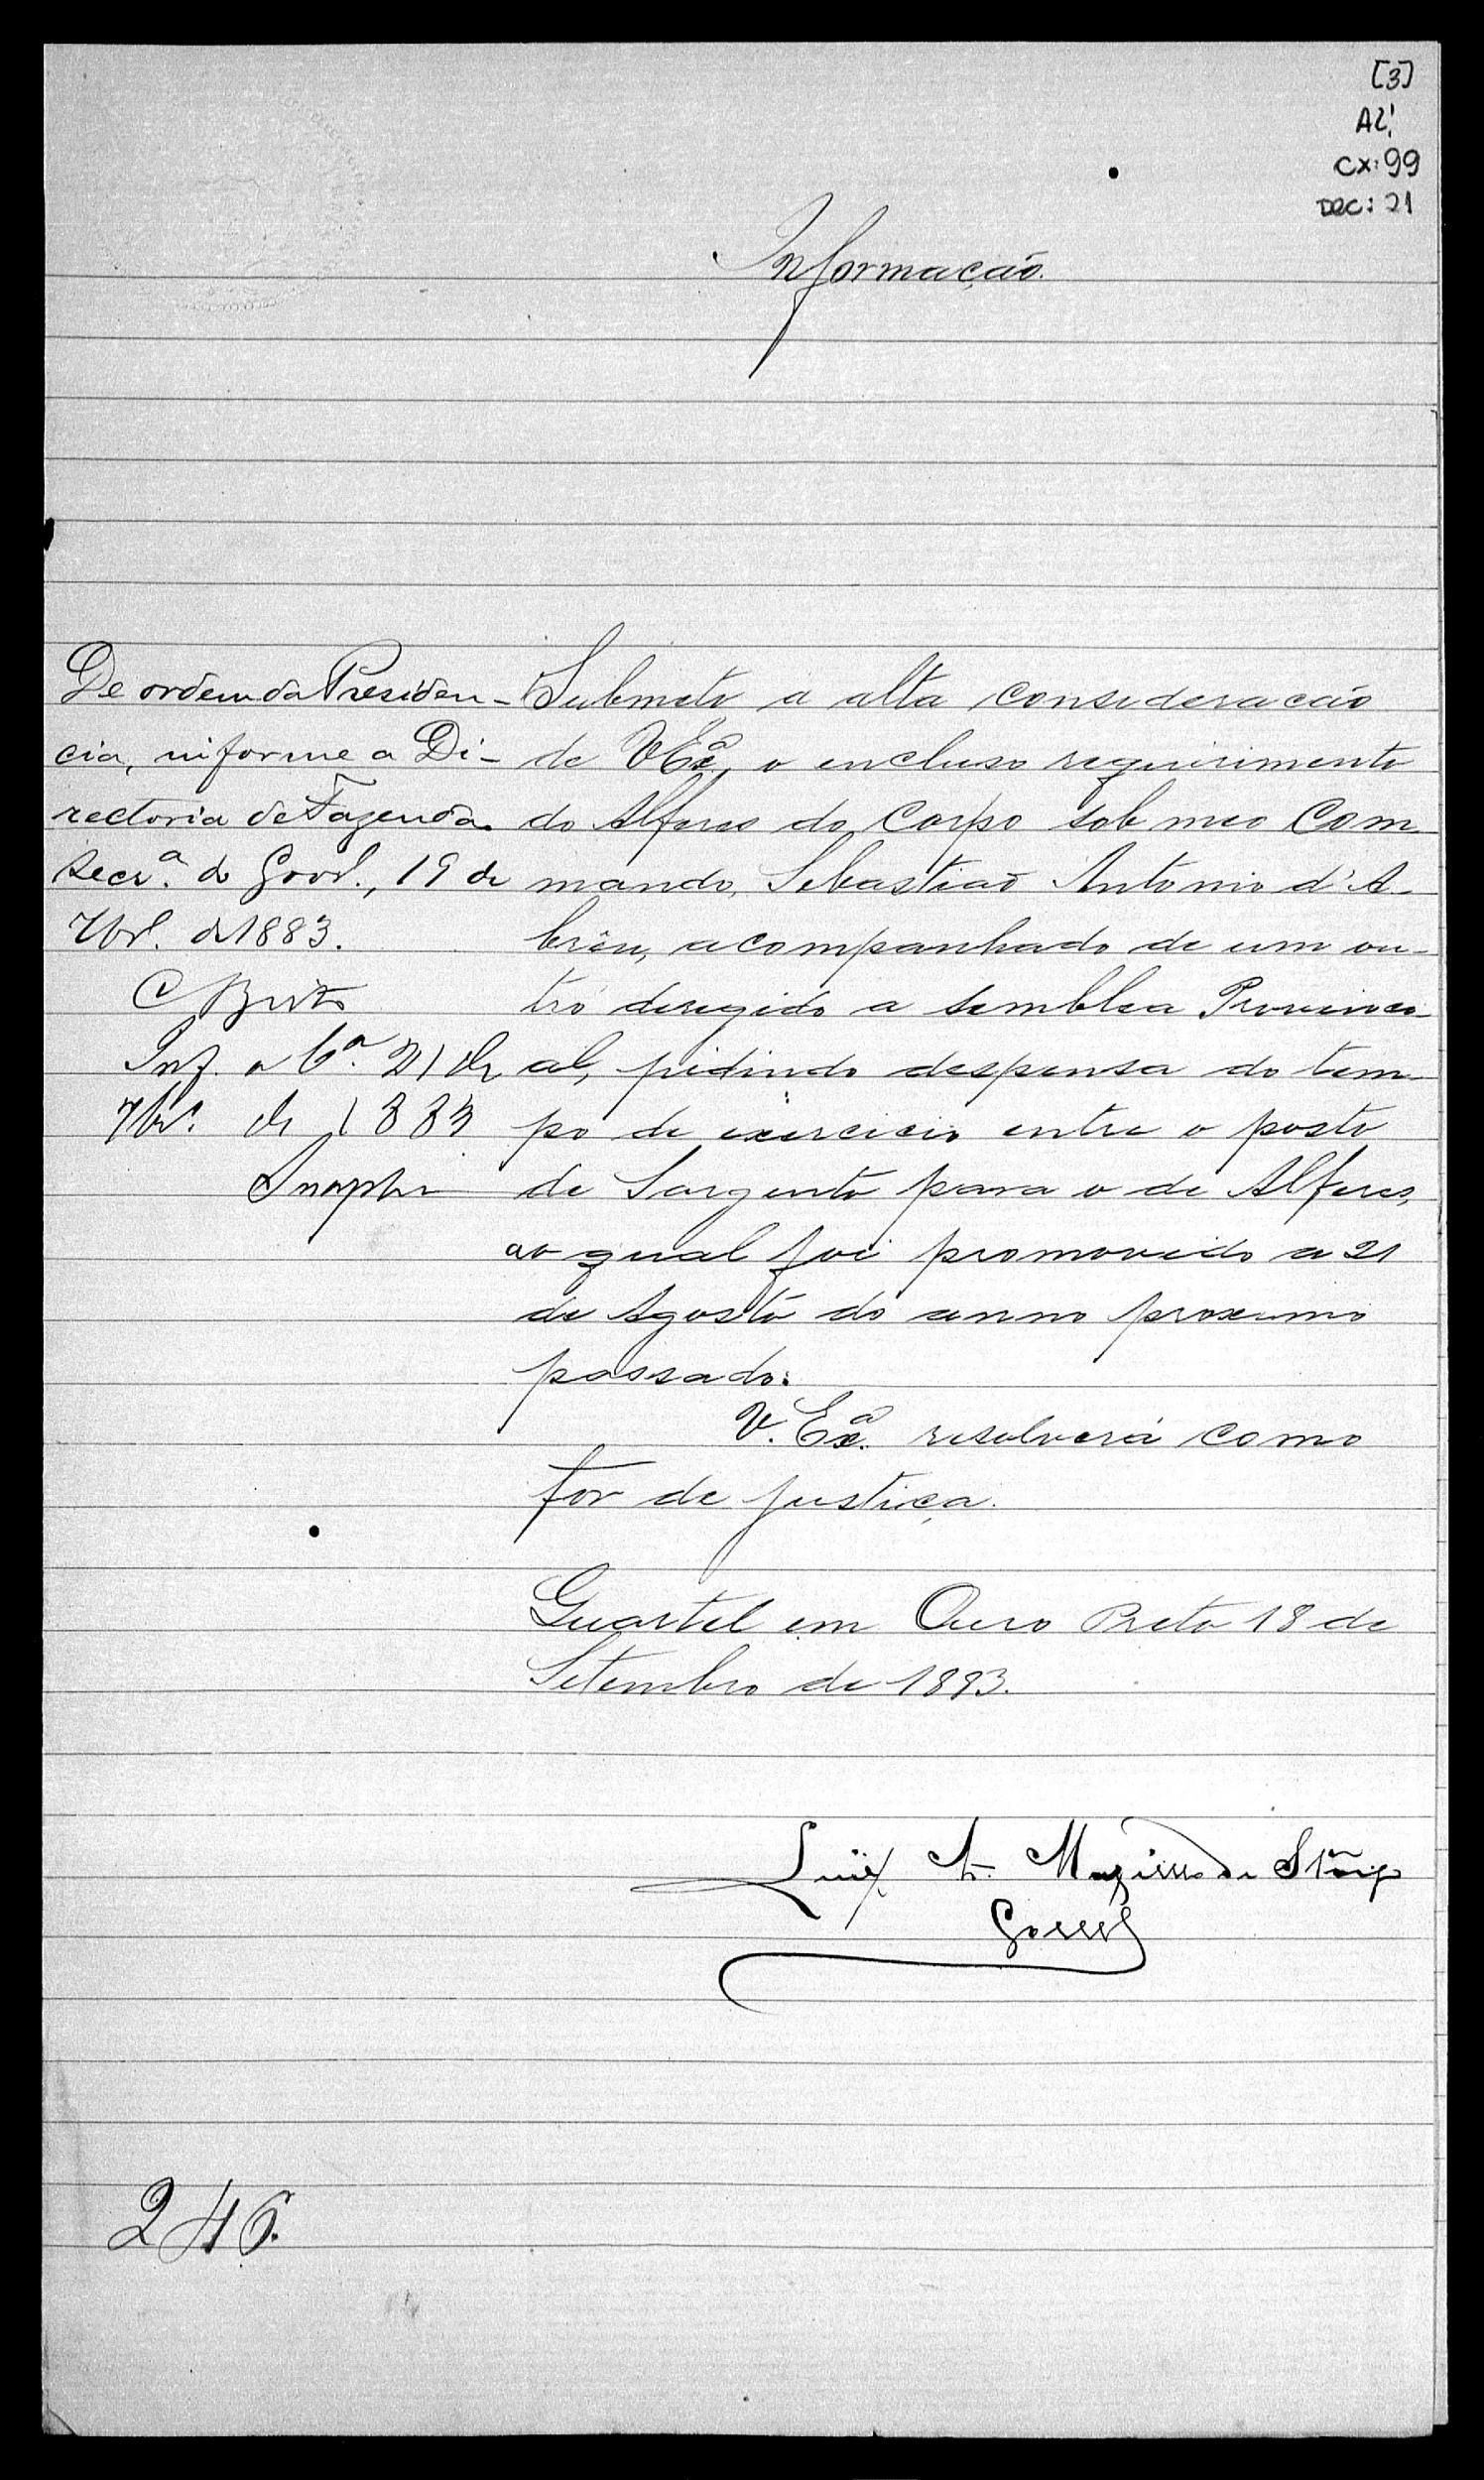 [3]
AL!
CX: 99
DOC: 21
Informação.
De ordem da Presiden-
cia, informe a Di-
rectoria de Fazenda.
Secr.ª do Gov.º, 19 de
7br.º de 1883.
C Brito
Inf. a 6.ª 21 de
7br.º de 1883
Submeto a alta consideracão
de V Ex.ª, o encluso requirimento
do Alferes do Corpo sob meo Com-
mando, Sebastiaõ Antonio d'A-
brêu, acompanhado de um ou-
tro deregido a Asemblea Provinci-
al, pidindo despensa do tem-
po de exercicio entre o posto
de Sargento para o de Alferes,
ao qual foi promovido a 21
de Agosto do anno proximo
passado.
V. Ex.ª resolverá como
for de justiça.
Quartel em Ouro Preto 18 de
Setembro de 1883.
Luiz A.
246.